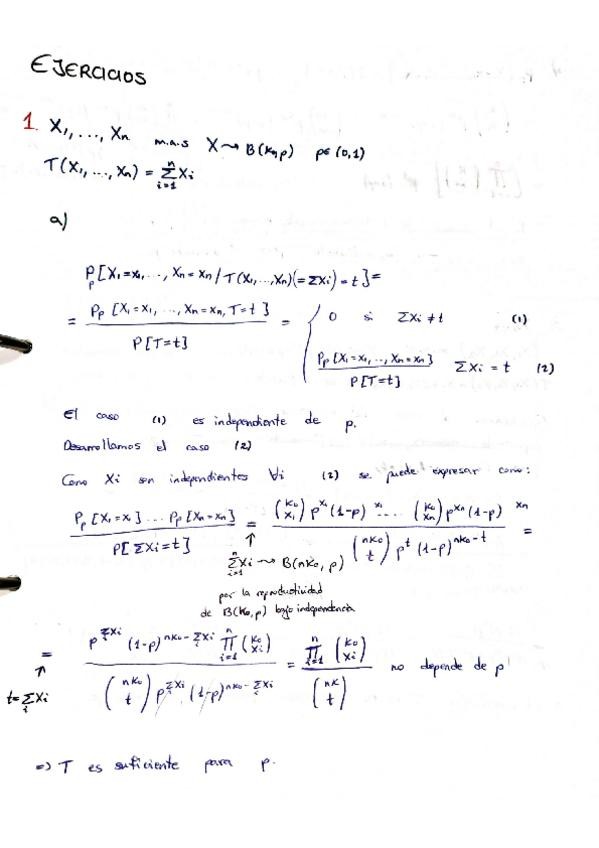 EJERCICIOS
1. X₁, ..., Xₙ m.a.s X ⇝ B(k₀,p) p∈(0,1)
T(X₁, ..., Xₙ) = Σᵢ₌₁ⁿ Xᵢ
a)
Pₚ[X₁=x₁, ..., Xₙ=xₙ / T(X₁,...,Xₙ)(=ΣXᵢ)=t] =
= Pₚ[X₁=x₁, ..., Xₙ=xₙ, T=t] / P[T=t] = { 0 si ΣXᵢ≠t (1)
Pₚ[X₁=x₁, .., Xₙ=xₙ] / P[T=t] ΣXᵢ=t (2)
El caso (1) es independiente de p.
Desarrollamos el caso (2)
Como Xᵢ son independientes ∀i (2) se puede expresar como:
Pₚ[X₁=x₁]...Pₚ[Xₙ=xₙ] / P[ΣXᵢ=t] = (k₀ x₁) p^x₁ (1-p)^x₁ .... (k₀ xₙ) p^xₙ (1-p)^xₙ / (nk₀ t) p^t (1-p)^(nk₀-t) =
↑
Σᵢ₌₁ⁿ Xᵢ ⇝ B(nk₀, p)
por la reproductividad
de B(k₀,p) bajo independencia
= p^(ΣXᵢ) (1-p)^(nk₀-ΣXᵢ) ∏ᵢ₌₁ⁿ (k₀ xᵢ) / (nk₀ t) p^(ΣXᵢ) (1-p)^(nk₀-ΣXᵢ) = ∏ᵢ₌₁ⁿ (k₀ xᵢ) / (nk t) no depende de p
↑
t=Σᵢ Xᵢ
=> T es suficiente para p.